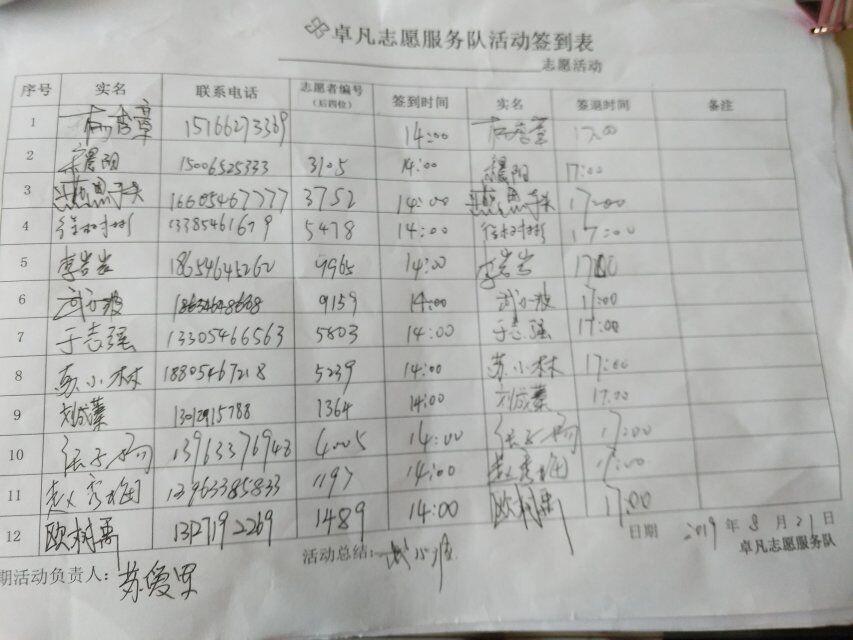 卓凡志愿服务队活动签到表
志愿活动
序号 实名 联系电话 志愿者编号（后四位） 签到时间 实名 签退时间 备注
1 15166273369 14:00 17:00
2 15006525333 3105 14:00 17:00
3 16605467777 3752 14:00 17:00
4 13385461679 5478 14:00 17:00
5 李岩岩 18654645262 9965 14:00 李岩岩 17:00
6 9159 14:00 17:00
7 于志强 13305466563 5803 14:00 于志强 17:00
8 苏小林 18805467218 5239 14:00 苏小林 17:00
9 刘成蓁 13012915788 1364 14:00 刘成蓁 17:00
10 13963376948 4005 14:00 17:00
11 13963385833 1197 14:00 17:00
12 1489 14:00 17:00
日期 2019 年 8 月 21 日
活动总结：
卓凡志愿服务队
期活动负责人：苏爱军